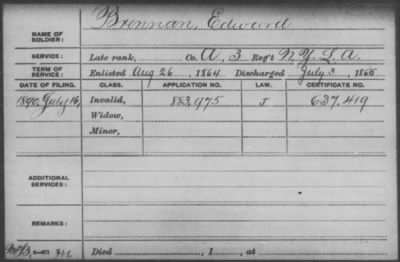 Brennan, Edward
NAME OF SOLDIER:
SERVICE: Late rank, Co. A, 3 Reg't N.Y.L.A.
TERM OF SERVICE: Enlisted Aug 26, 1864 Discharged July 3, 1865
DATE OF FILING. CLASS. APPLICATION NO. LAW. CERTIFICATE NO.
1890, July 16, Invalid, 883,975 J 637,419
Widow,
Minor,
ADDITIONAL SERVICES:
REMARKS:
Died , 1 , at